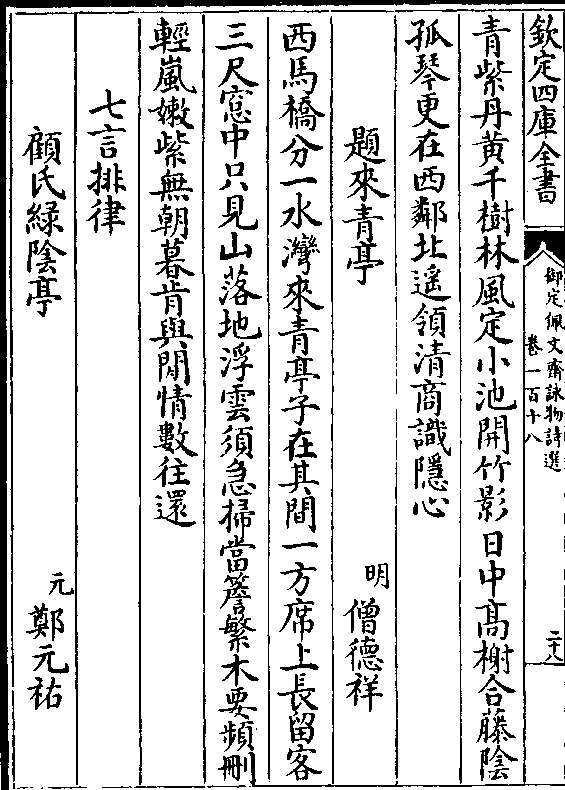 欽定四庫全書
御定佩文齋詠物詩選
卷一百十八
二十八
青紫丹黄千樹林風定小池開竹影日中高榭合藤陰
孤琴更在西鄰北遥領清商識隱心
題來青亭
明 僧德祥
西馬橋分一水灣來青亭子在其間一方席上長留客
三尺窻中只見山落地浮雲須急掃當簷繁木要頻刪
輕嵐嫩紫無朝暮肯與閒情數往還
七言排律
顧氏緑陰亭
元 鄭元祐